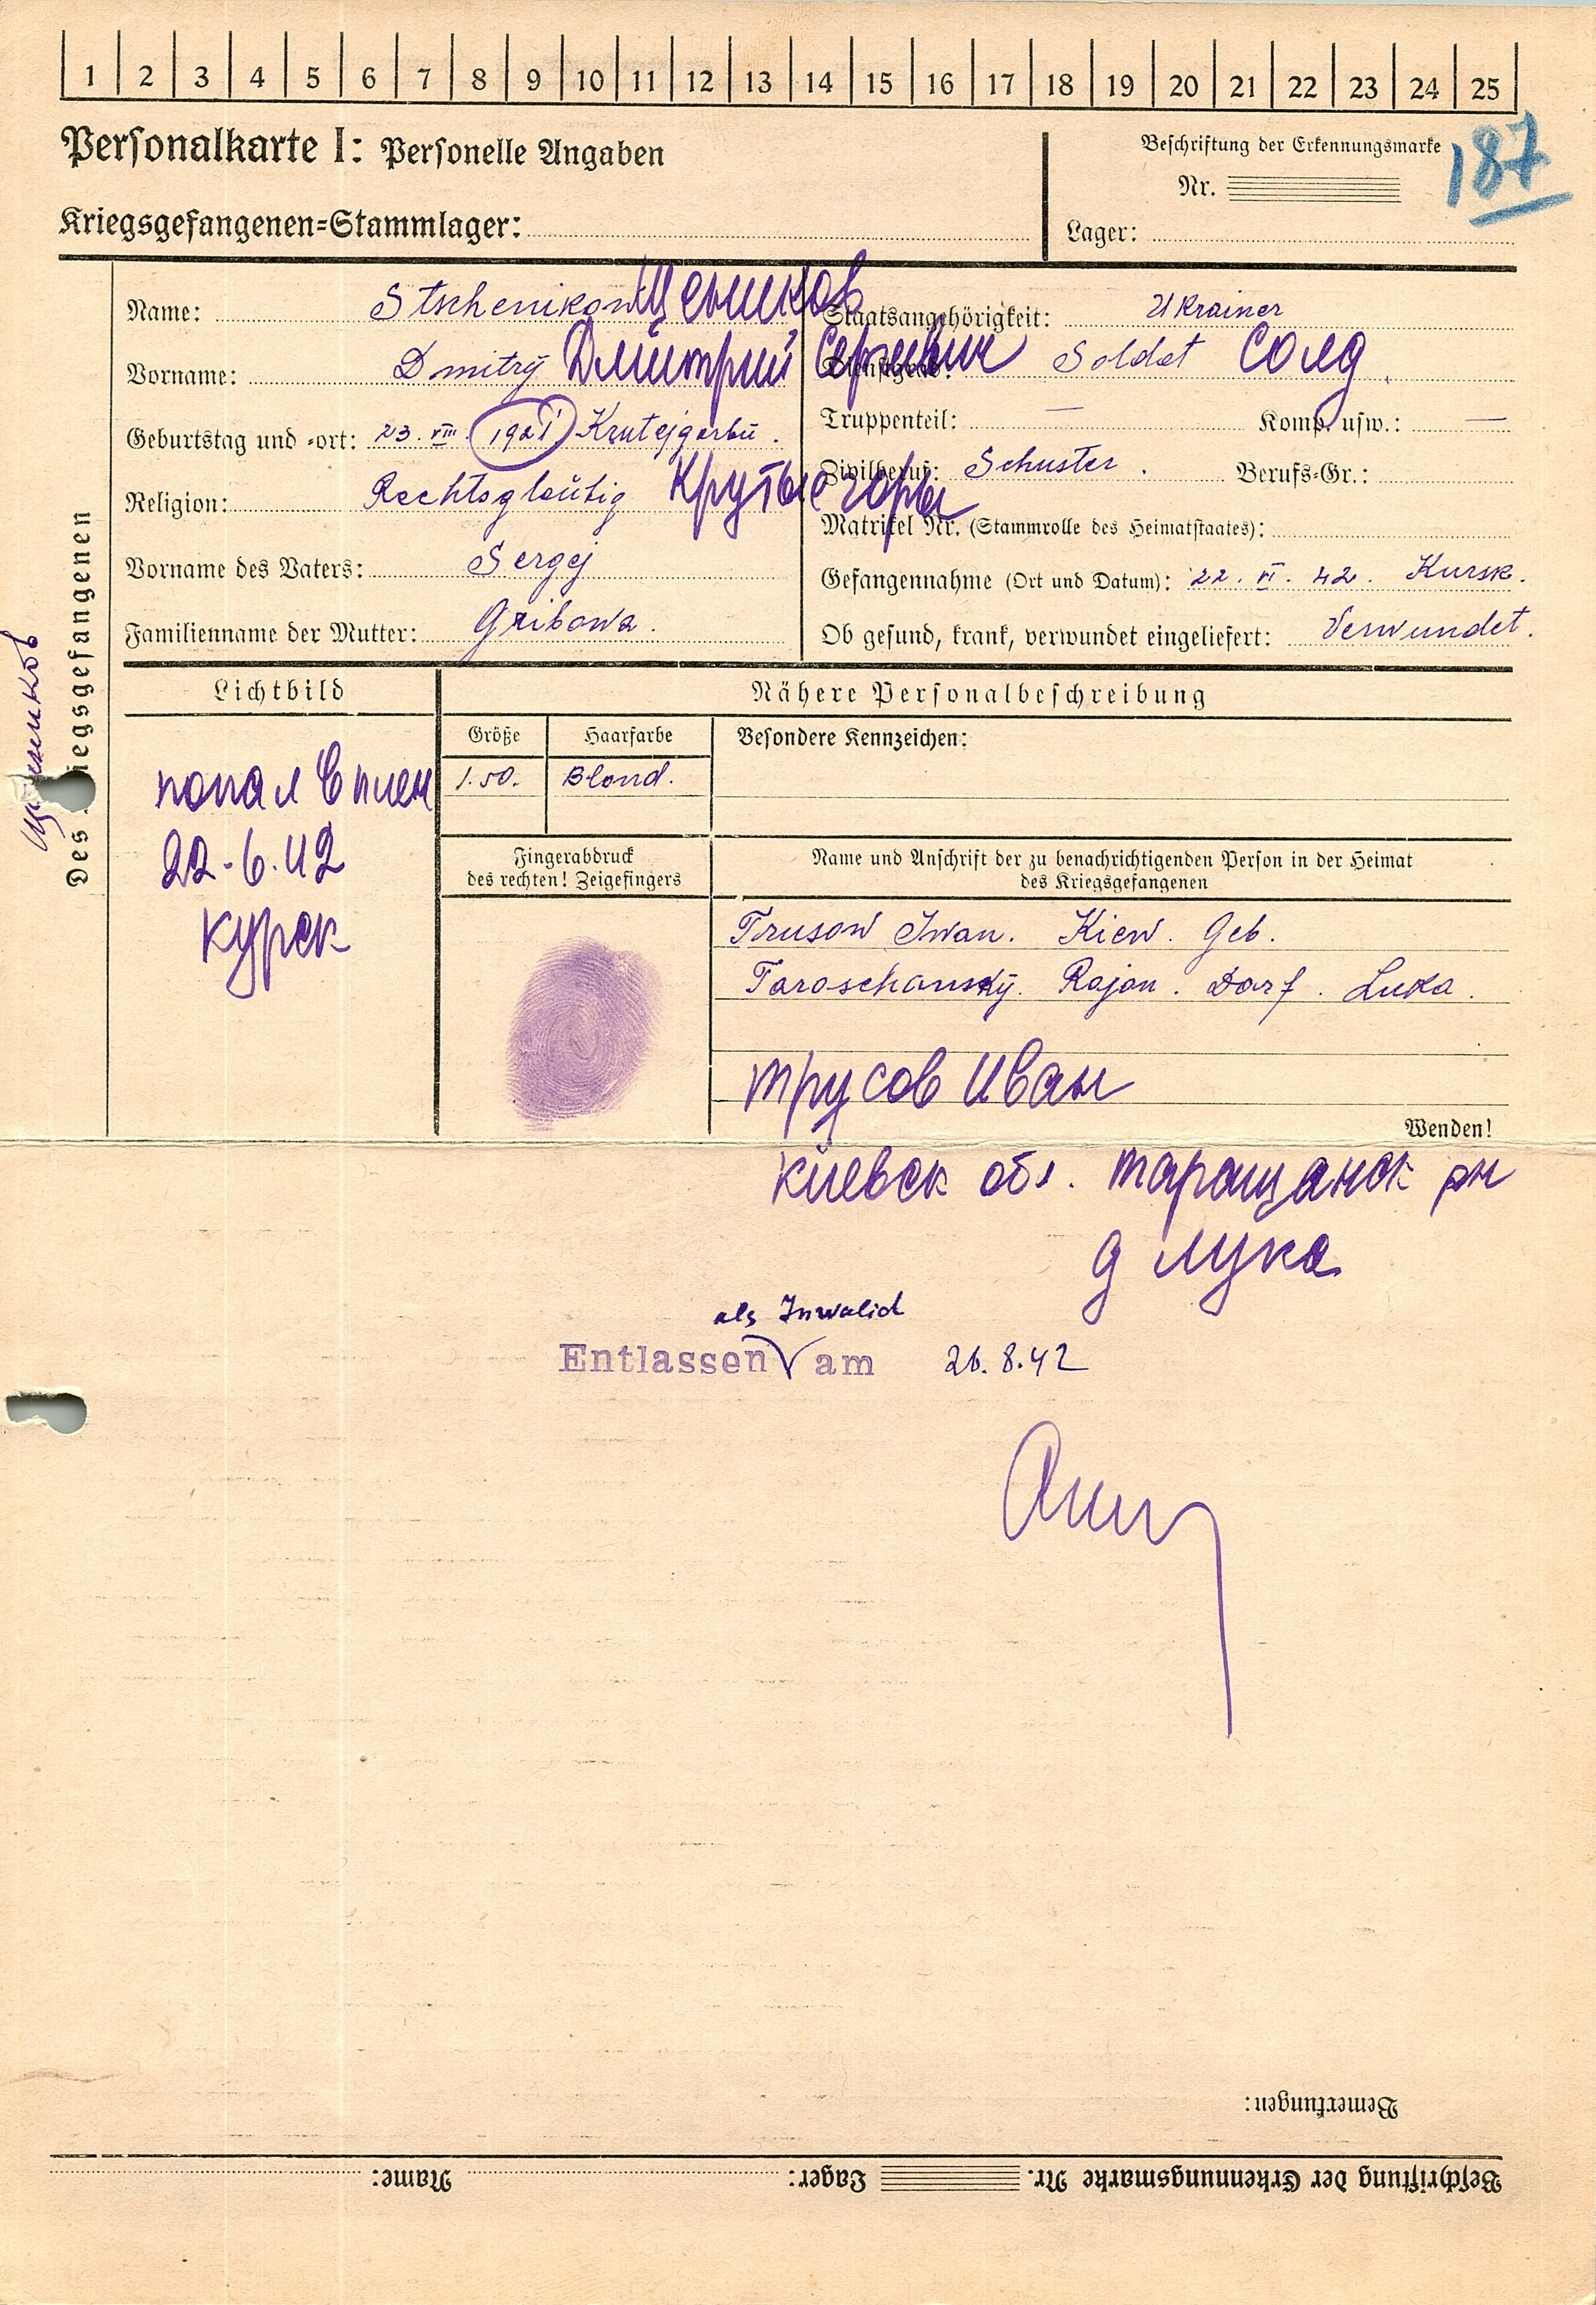 1 2 3 4 5 6 7 8 9 10 11 12 13 14 15 16 17 18 19 20 21 22 23 24 25
Personalkarte I: Personelle Angaben
Beschriftung der Erkennungsmarke
187
Nr.
Kriegsgefangenen=Stammlager:
Lager:
Des iegsgefangenen
Name: Stschenikow
Staatsangehörigkeit: Ukrainer
Vorname: Dmitrÿ Дмитрий Сергеевич
Soldat Солд.
Geburtstag und =ort: 23. VIII. 1921 Krutejgorbü.
Truppenteil: — Komp. usw.: —
Religion: Rechtsgläübig Крутые горбы
Zivilberuf: Schuster. Berufs=Gr.:
Matrikel Nr. (Stammrolle des Heimatstaates):
Vorname des Vaters: Sergej
Gefangennahme (Ort und Datum): 22. VI. 42. Kursk.
Familienname der Mutter: Gribowa.
Ob gesund, krank, verwundet eingeliefert: Verwundet.
Lichtbild
Nähere Personalbeschreibung
Größe Haarfarbe Besondere Kennzeichen:
1.50. Blond.
попал в плен
22-6.42
Курск
Fingerabdruck
des rechten! Zeigefingers
Name und Anschrift der zu benachrichtigenden Person in der Heimat
des Kriegsgefangenen
Trusow Iwan. Kiew. Geb.
Taraschanskÿ. Rajon. Dorf. Luka.
Трусов Иван
Wenden!
Киевск обл. Таращанск рн
д Лука
als Invalid
Entlassen am 26.8.42
Bemerkungen:
Beschriftung der Erkennungsmarke Nr. Lager: Name: